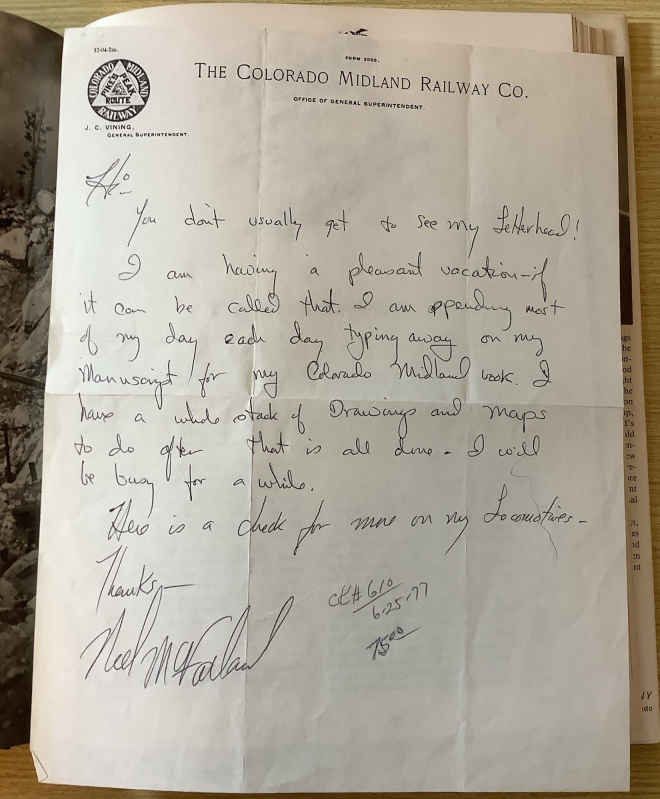 12-04-2m.
FORM 2005.
THE COLORADO MIDLAND RAILWAY CO.
OFFICE OF GENERAL SUPERINTENDENT.
COLORADO MIDLAND
PIKE'S PEAK
ROUTE
RAILWAY
J. C. VINING,
GENERAL SUPERINTENDENT.
Hi-
You don't usually get to see my Letterhead!
I am having a pleasant vacation-if
it can be called that. I am spending most
of my day each day typing away on my
Manuscript for my Colorado Midland book. I
have a whole stack of Drawings and maps
to do after that is all done - I will
be busy for a while.
Here is a check for more on my Locomotives -
Thanks,
Noel McFarland
CK# 610
6-25-77
75.00